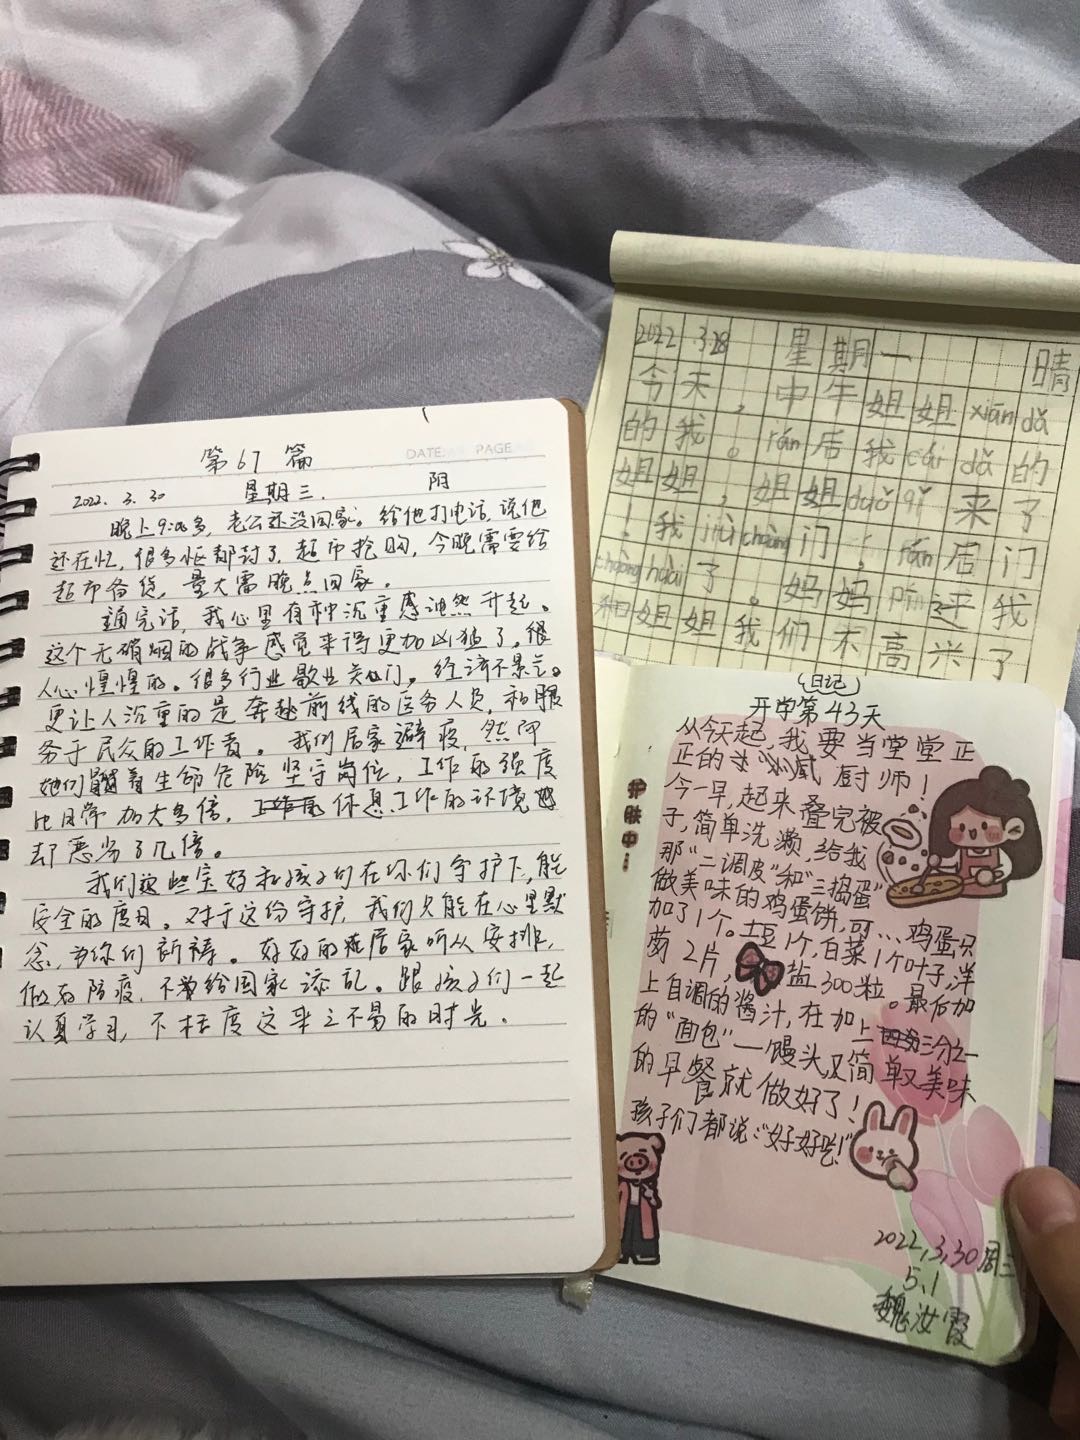 DATE: PAGE
第67篇
2022.3.30 星期三. 阴
晚上9:00多，老公还没回家。给他打电话，说他
还在忙，很多柜都封了，超市抢购，今晚需要给
超市备货，量大需晚点回家。
通完话，我心里有种沉重感油然升起。
这个无硝烟的战争感觉来得更加凶猛了。很
人心惶惶的。很多行业歇业关门。经济不景气。
更让人沉重的是奔赴前线的医务人员，和服
务于民众的工作者。我们居家避疫，然而
她们冒着生命危险坚守岗位，工作的强度
比日常加大多倍，休息工作的环境
却恶劣了几倍。
我们这些宝妈和孩子们在你们守护下，能
安全的度日。对于这份守护，我们只能在心里默
念，为你们祈祷。好好的居家听从安排，
做好防疫，不给国家添乱。跟孩子们一起
认真学习，不枉度这来之不易的时光。
2022 3.28 星期一 晴
今天，中午姐姐xiān dǎ
的我。rán后我cái dǎ的
姐姐，姐姐duǒ qǐ来了
！我jiù chuàng门，rán后门
chuàng huài了。妈妈pī评我
和姐姐我们不高兴了
(日记)
开学第43天
从今天起，我要当堂堂正
正的厨师！
今一早，起来叠完被
子，简单洗漱，给我
那“二调皮”和“三捣蛋”
做美味的鸡蛋饼，可…鸡蛋只
加了1个。土豆1个，白菜1个叶子，洋
葱2片，盐300粒。最后加
上自调的酱汁，在加上三分之一
的“面包”—馒头又简单又美味
的早餐就做好了！
孩子们都说：“好好吃！”
护肤中…
2022,3,30周三
5.1
魏汝霞